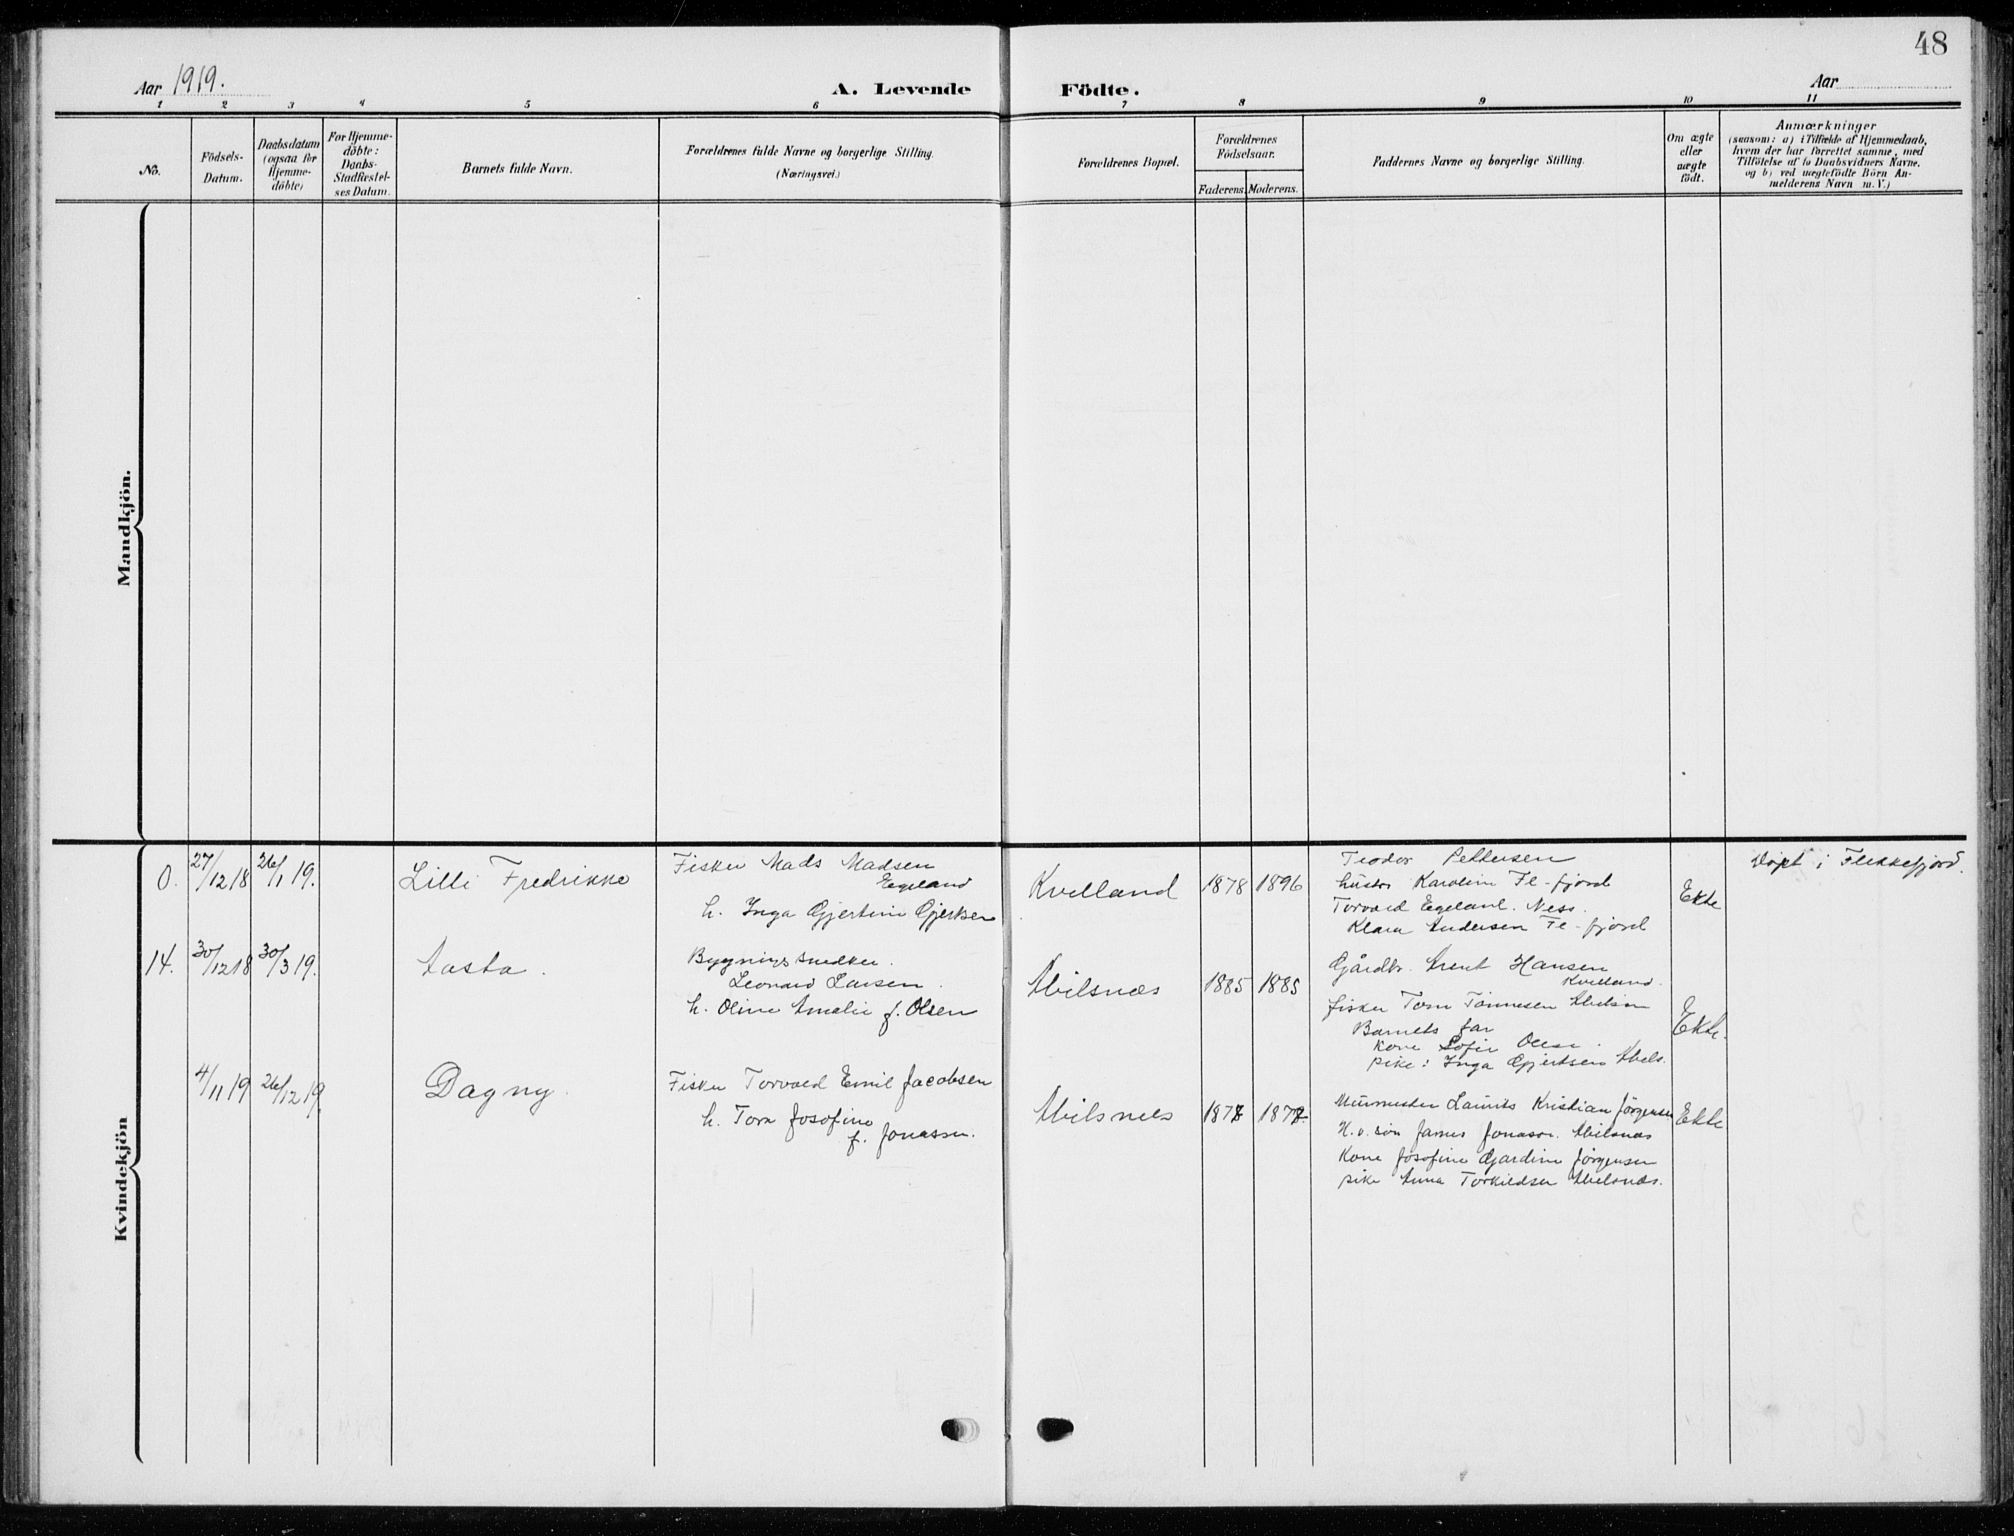 48
Aar 1919.
A. Levende Födte.
Aar
1 2 3 4 5 6 7 8 9 10 11
No.
Födsels-
Datum.
Daabsdatum
(ogsaa for
Hjemme-
döbte)
For Hjemme-
döbte:
Daabs-
Stadfestel-
ses Datum.
Barnets fulde Navn.
Forældrenes fulde Navne og borgerlige Stilling.
(Næringsvei.)
Forældrenes Bopæl.
Forældrenes
Födselsaar.
Faderens. Moderens.
Faddernes Navne og borgerlige Stilling.
Om ægte
eller
uægte
födt.
Anmærkninger
(saasom: a) i Tilfælde af Hjemmedaab,
hvem der har forrettet samme, med
Tilföielse af to Daabsvidners Navne,
og b) ved uægtefödte Börn An-
melderens Navn m. V.)
Mandkjön.
Kvindekjön
0. 27/12 18 26/1 19.
Lilli Fredrikke
Fisker Mads Madsen
Egeland
h. Inga Gjertine Gjertsen
Kvelland
1878 1896
Teodor Pettersen
hustr Karoline Fl-fjord
Torvald Egeland. Ness.
Klara Andersen Fl-fjord
Ekte
Døpt i Flekkefjord.
14. 30/12 18 30/3 19.
Aasta.
Bygningssnedker.
Leonard Larsen.
h. Oline Amalie f. Olsen
Abilsnæs
1885 1885
Gårdbr. Arent Hansen
Kvelland.
fisker Tom Tönnesen
Barnets far
Kone Sofie
pike: Inga Gjertsen Abels.
Ekte.
4/11 19 26/12 19.
Dagny.
Fisker Torvald Emil Jacobsen
h. Tora Josofine
f. Jonassen.
Abilsnes
187 187
Murmester Laurits Kristian Jörgensen
H.v. sön James Jonassen. Abilsnæs
Kone Josofine Gjardine Jörgensen
pike Anna Torkildsen Abelsnæs.
Ekte